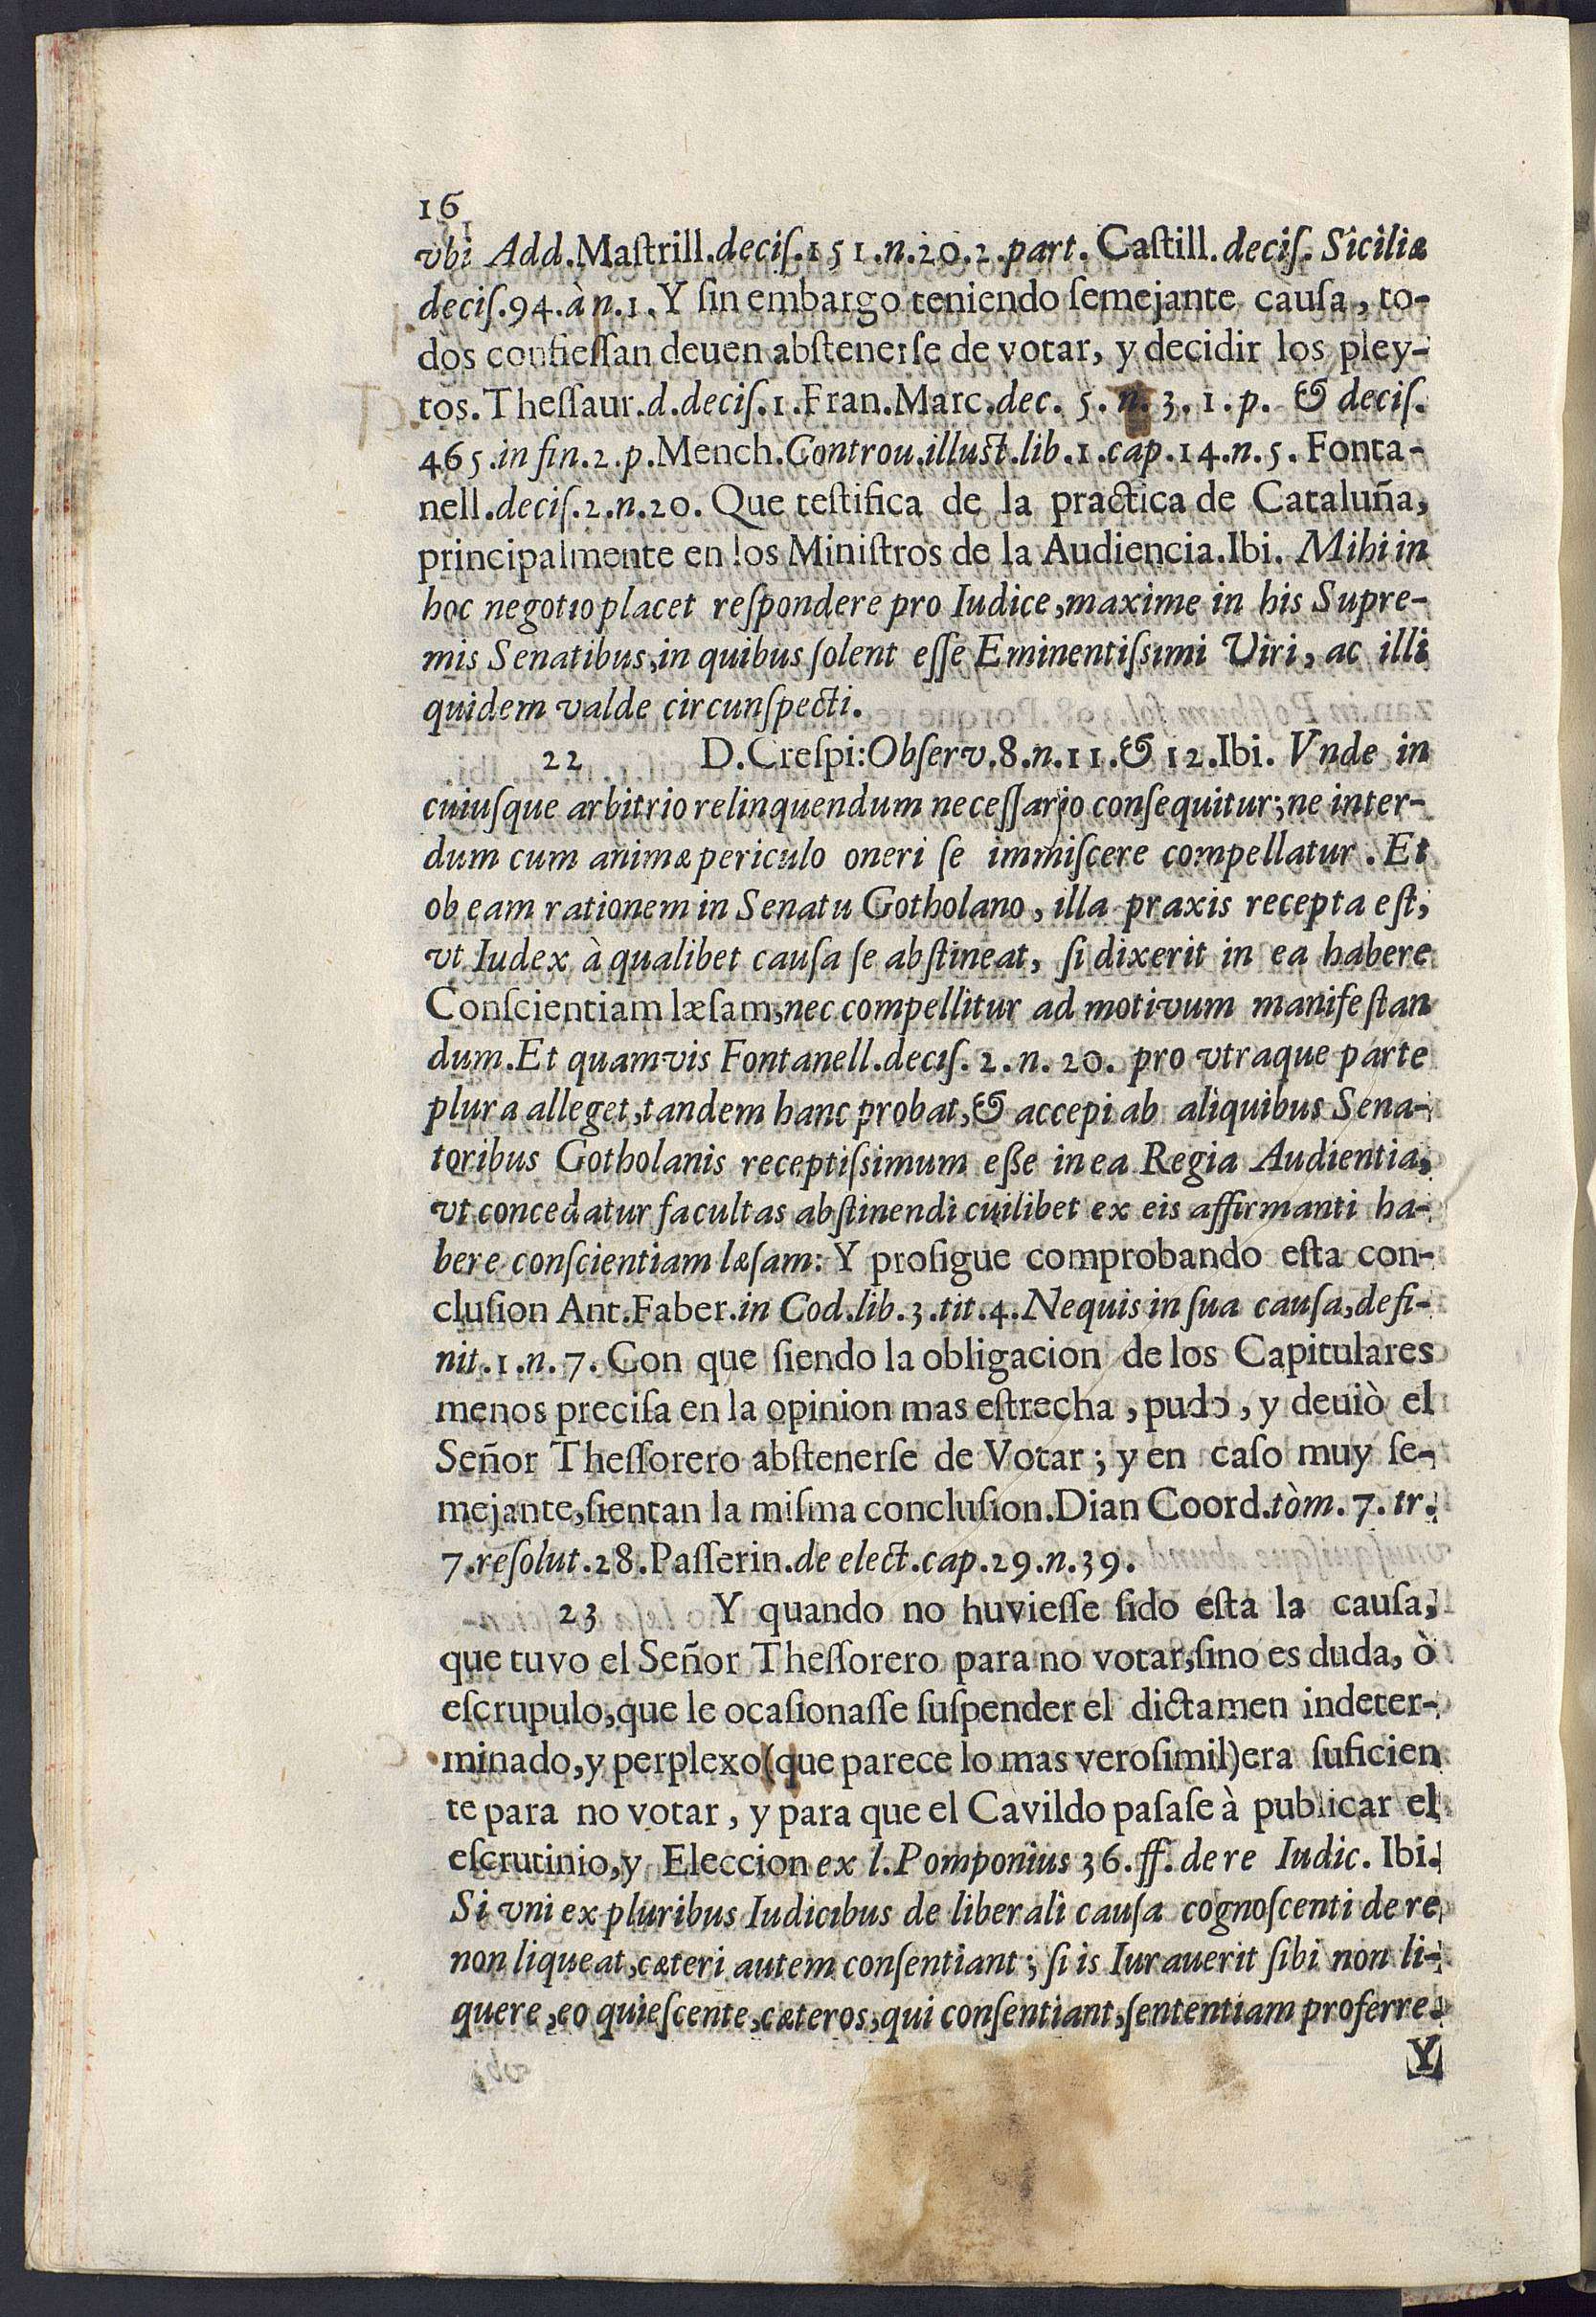 16
vbi Add.Maſtrill.deciſ.151.n.20.2.part. Caſtill.deciſ. Siciliæ
deciſ.94.à n.1.Y ſin embargo teniendo ſemejante cauſa, to-
dos confieſſan deuen abſtenerſe de votar, y decidir los pley-
tos.Theſſaur.d.deciſ.1.Fran.Marc.dec. 5. n. 3. 1. p. & deciſ.
465.in fin.2.p.Mench.Controu.illuſt.lib.1.cap.14.n.5. Fonta-
nell.deciſ.2.n.20. Que teſtifica de la practica de Cataluña,
principalmente en los Miniſtros de la Audiencia.Ibi. Mihi in
hoc negotio placet reſpondere pro Iudice,maxime in his Supre-
mis Senatibus,in quibus ſolent eſſe Eminentiſsimi Viri, ac illi
quidem valde circunſpecti.
22 D.Creſpi:Obſerv.8.n.11.& 12.Ibi. Vnde in
cuiuſque arbitrio relinquendum neceſſario conſequitur;ne inter-
dum cum animæ periculo oneri ſe immiſcere compellatur. Et
ob eam rationem in Senatu Gotholano, illa praxis recepta eſt,
vt Iudex à qualibet cauſa ſe abſtineat, ſi dixerit in ea habere
Conſcientiam læſam,nec compellitur ad motivum manifeſtan
dum.Et quamvis Fontanell.deciſ. 2. n. 20. pro vtraque parte
plura alleget,tandem hanc probat,& accepi ab aliquibus Sena-
toribus Gotholanis receptiſsimum eſſe in ea Regia Audientia,
vt concedatur facultas abſtinendi cuilibet ex eis affirmanti ha-
bere conſcientiam læſam: Y proſigue comprobando eſta con-
cluſion Ant.Faber.in Cod.lib.3.tit.4.Nequis in ſua cauſa,defi-
nit.1.n.7. Con que ſiendo la obligacion de los Capitulares
menos preciſa en la opinion mas eſtrecha, pudo, y deuiò el
Señor Theſſorero abſtenerſe de Votar; y en caſo muy ſe-
mejante,ſientan la miſma concluſion.Dian Coord.tòm. 7. tr.
7.reſolut.28.Paſſerin.de elect.cap.29.n.39.
23 Y quando no huvieſſe ſido eſta la cauſa,
que tuvo el Señor Theſſorero para no votar,ſino es duda, ò
eſcrupulo,que le ocaſionaſſe ſuſpender el dictamen indeter-
minado,y perplexo(que parece lo mas veroſimil)era ſuficien
te para no votar, y para que el Cavildo paſaſe à publicar el
eſcrutinio,y Eleccion ex l.Pomponius 36.ff.de re Iudic. Ibi.
Si vni ex pluribus Iudicibus de liberali cauſa cognoſcenti de re
non liqueat,cæteri autem conſentiant; ſi is Iurauerit ſibi non li-
quere,eo quieſcente,cæteros,qui conſentiant,ſententiam proferre.
Y